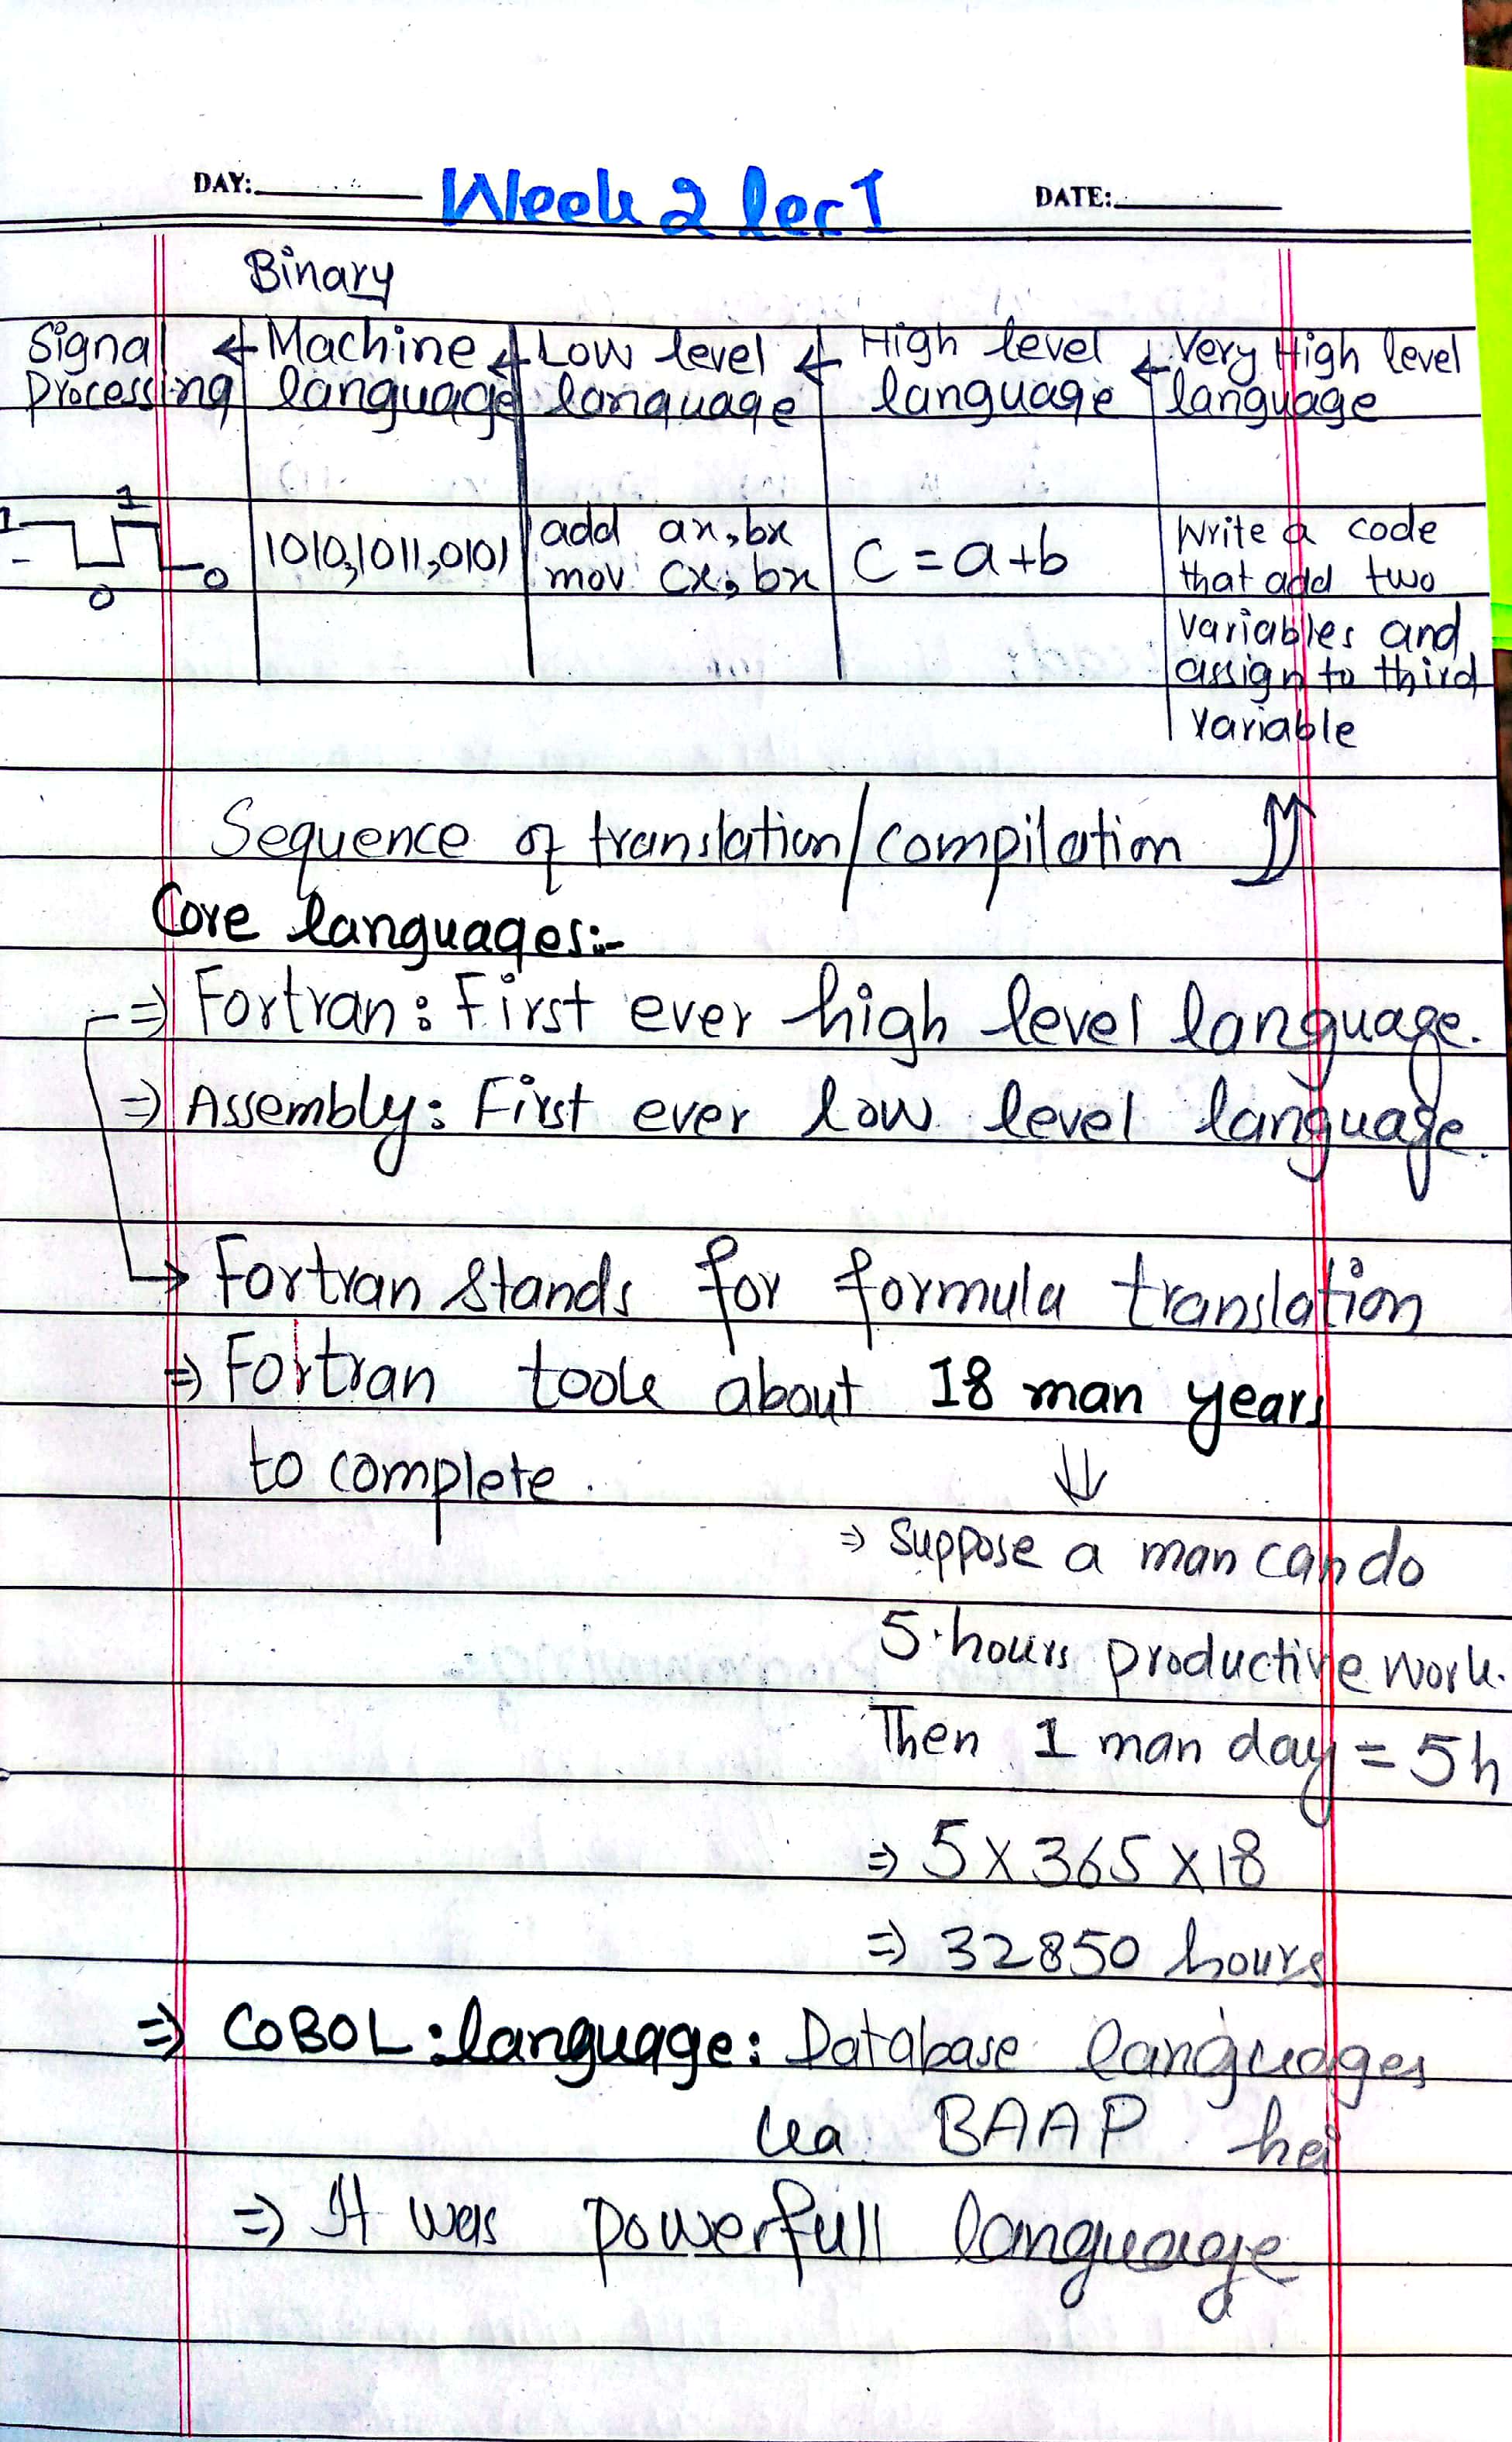 DAY: Week 2 lec 1 DATE:
Binary
Signal Processing ← Machine language ← Low level language ← High level language ← Very High level language
1 0 1 0
1010,1011,0101
add ax,bx
mov cx,bx
C = a+b
Write a code
that add two
variables and
assign to third
variable
Sequence of translation/compilation
Core languages:-
⇒ Fortran: First ever high level language.
⇒ Assembly: First ever low level language.
→ Fortran stands for formula translation
⇒ Fortran took about 18 man years
to complete.
⇒ Suppose a man can do
5 hours productive work.
Then 1 man day = 5h
⇒ 5 x 365 x 18
⇒ 32850 hours
⇒ COBOL: language: Database languages
ka BAAP hai
⇒ It was powerfull language